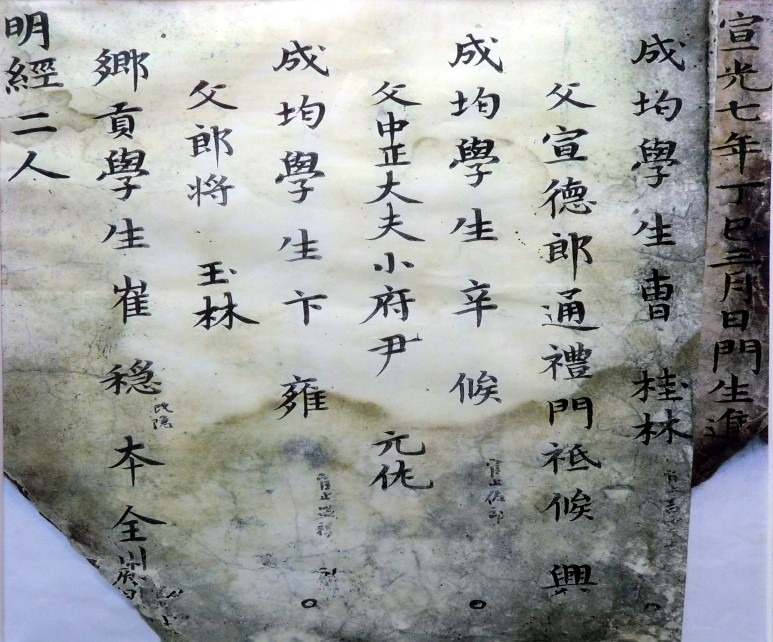 宣光七年丁巳三月日門生進
成均學生曹 桂林
父宣德郎通禮門祗候 興
成均學生辛 候
父中正大夫小府尹 元佐
成均學生卞 雍
父郎将 玉林
鄉貢學生崔 穏 本全州
改隐
明經二人